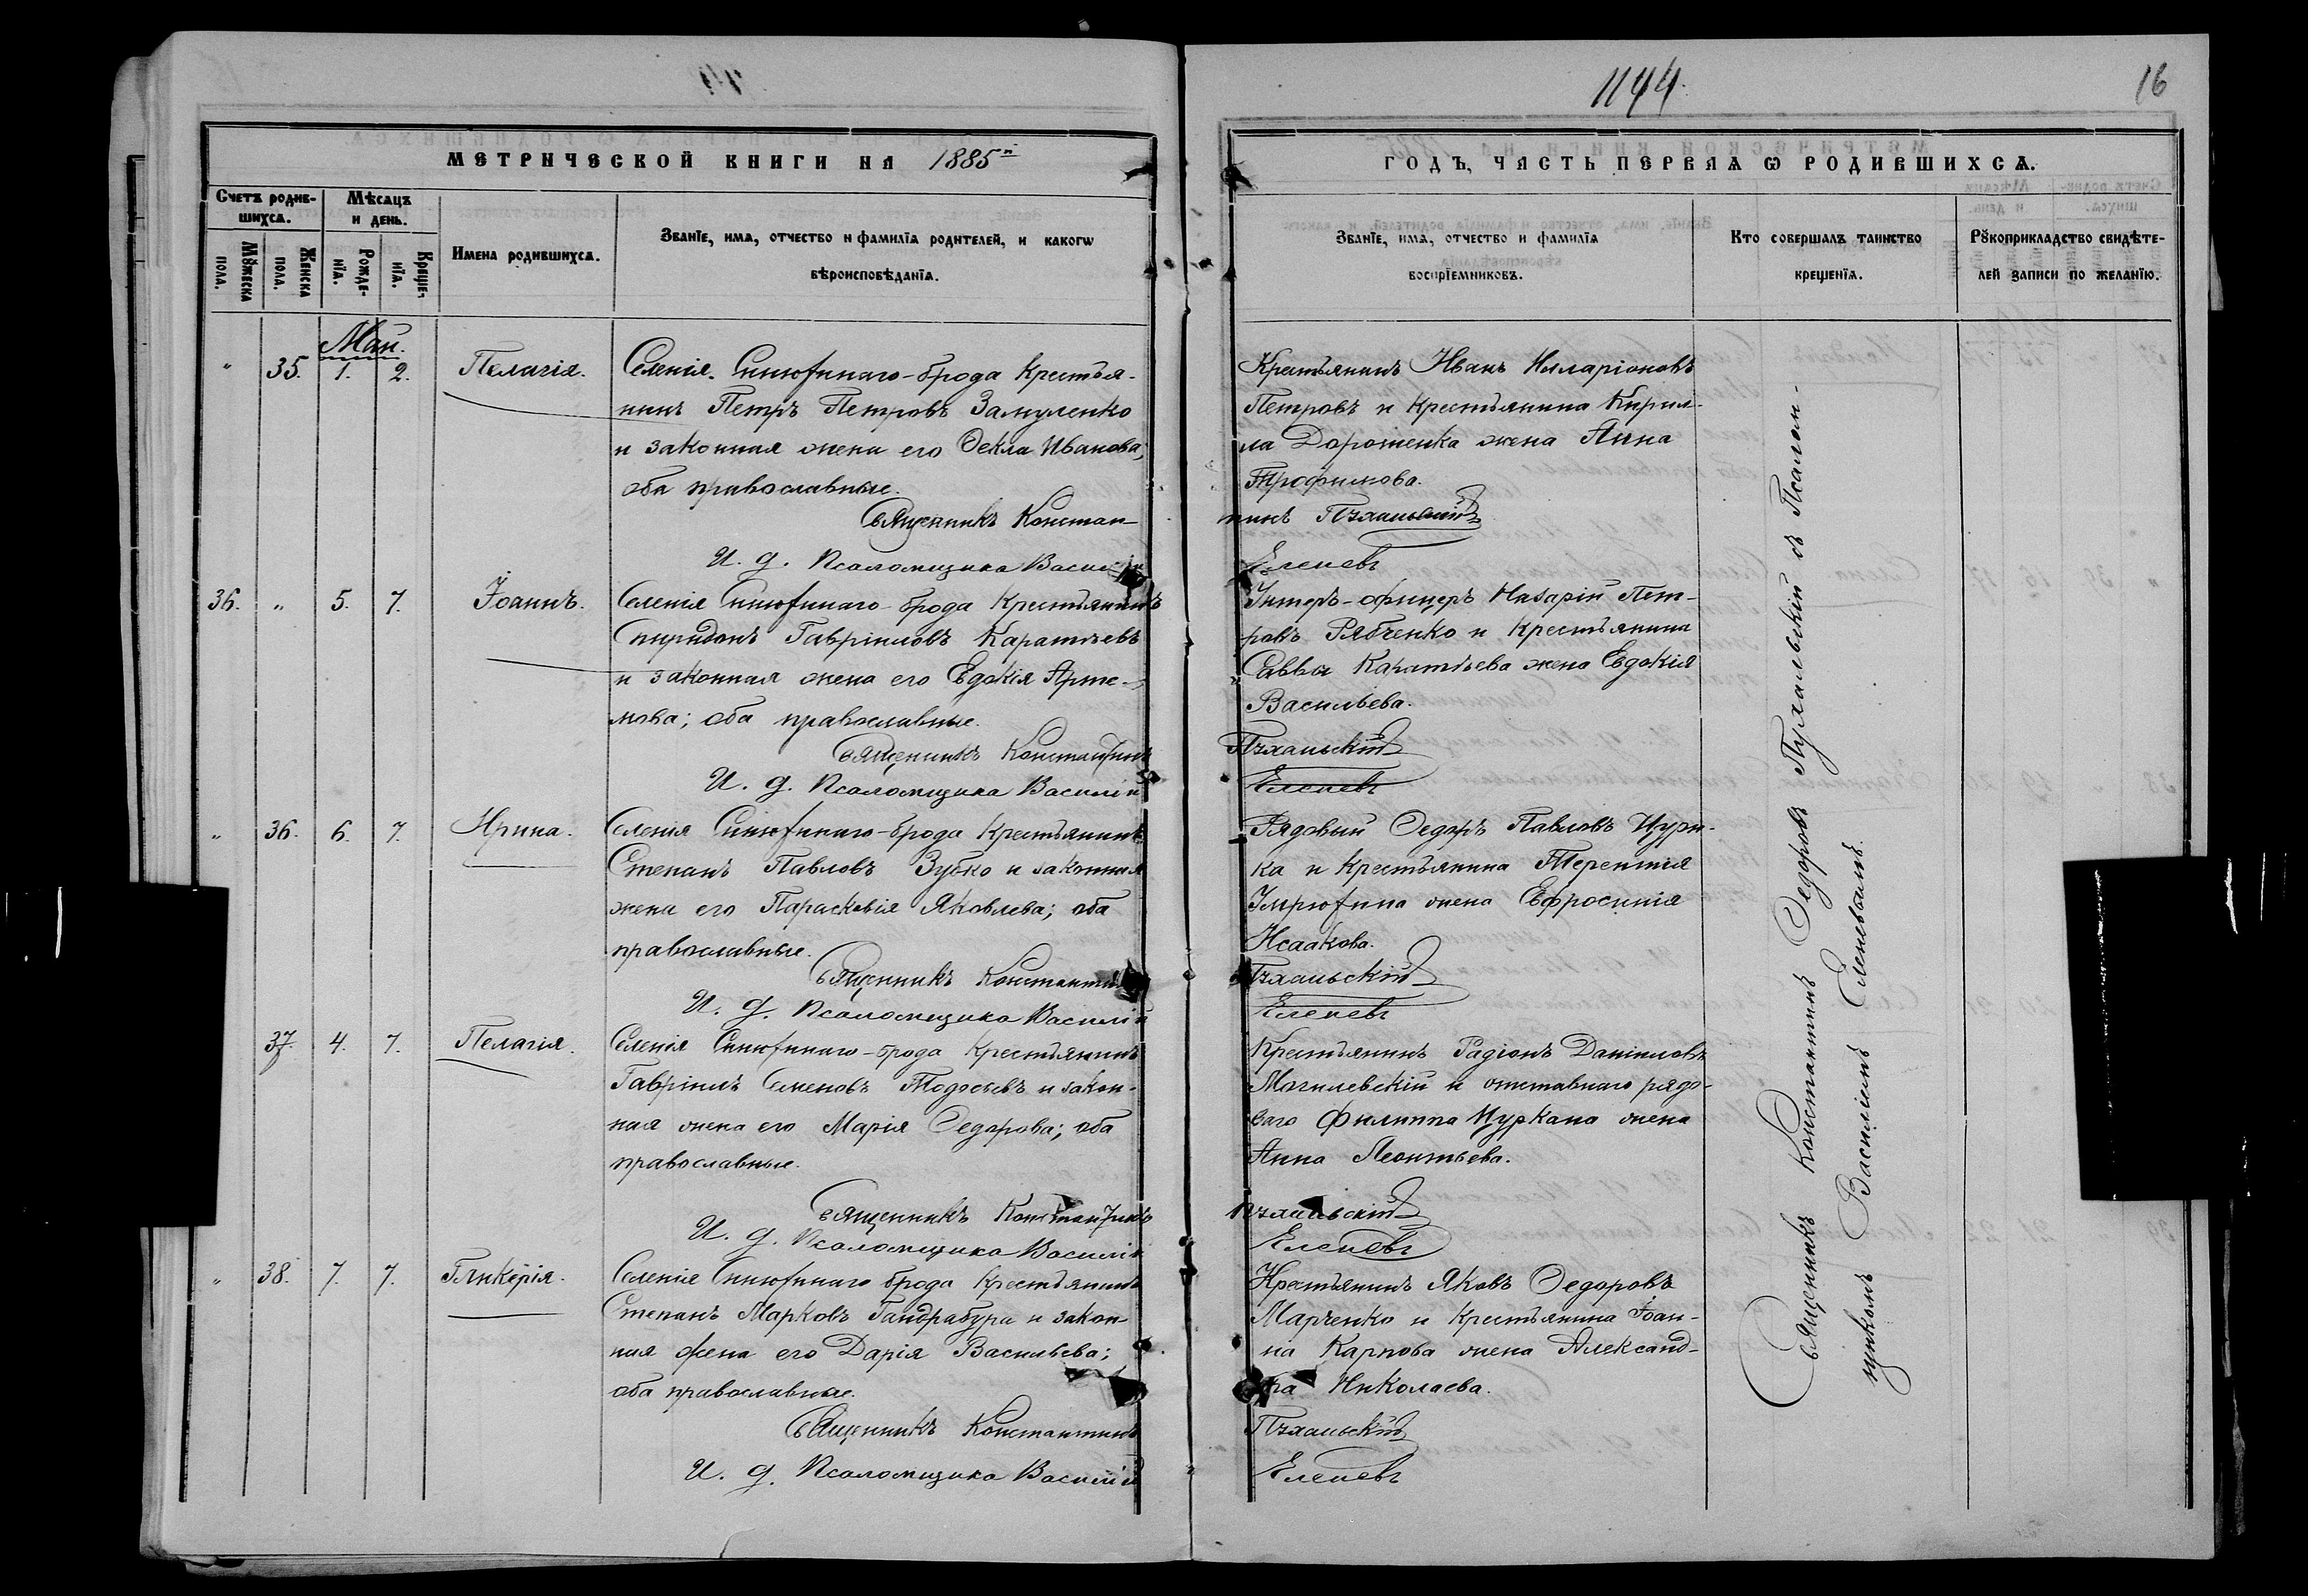 1144.
16
МЕТРИЧЕСКОЙ КНИГИ НА 1885й
ГОДЪ, ЧАСТЬ ПЕРВАЯ Ѡ РОДИВШИХСѦ.
Счетъ родив-
шихсѧ.
Мѣсяцъ
и день.
Мꙋжеска
пола.
Женска
пола.
Рожде-
нїѧ.
Креще-
нїѧ.
Имена родившихсѧ.
Званїе, имѧ, отчество и фамилїѧ родителей, и какогѡ
вѣроисповѣданїѧ.
Званїе, имѧ, отчество и фамилїѧ
воспрїемниковъ.
Кто совершалъ таинство
крещенїѧ.
Рꙋкоприкладство свидѣте-
лей записи по желанїю.
Май.
" 35. 1. 2. Пелагія.
Селенія Синюхинаго-брода Крестья-
нинъ Петръ Петровъ Замуленко
и законная жена его Ѳекла Иванова;
оба православные.
Священникъ Констан-
И. д. Псаломщика Василій
Крестьянинъ Иванъ Иларіоновъ
Петровъ и Крестьянина Кирил-
ла Дорошенка жена Анна
Трофимова.
тинъ Пухальскій
Еленевъ
36. " 5. 7. Іоаннъ.
Селенія Синюхинаго-брода Крестьянинъ
Спиридонъ Гавріиловъ Каратѣевъ
и законная жена его Евдокія Арте-
мова; оба православные.
Священникъ Константинъ
И. д. Псаломщика Василій
Унтеръ-офицеръ Назарій Пет-
ровъ Рябченко и Крестьянина
Саввы Каратѣева жена Евдокія
Васильева.
Пухальскій
Еленевъ
" 36. 6. 7. Ирина.
Селенія Синюхинаго-брода Крестьянинъ
Степанъ Павловъ Зубко и законная
жена его Параскевія Яковлева; оба
православные.
Священникъ Константинъ
И. д. Псаломщика Василій
Рядовый Ѳедоръ Павловъ Цури-
ка и Крестьянина Терентія
жена Евфросинія
Исаакова.
Пухальскій
Еленевъ
37. 4. 7. Пелагія.
Селенія Синюхинаго-брода Крестьянинъ
Гавріилъ Семеновъ Тодосьевъ и закон-
ная жена его Марія Ѳедорова; оба
православные.
Священникъ Константинъ
И. д. Псаломщика Василій
Крестьянинъ Радіонъ Даніиловъ
Могилевскій и отставнаго рядо-
ваго Филиппа Цуркана жена
Анна Леонтьева.
Пухальскій
Еленевъ
" 38. 7. 7. Гликерія.
Селенія Синюхинаго брода Крестьянинъ
Степанъ Марковъ Гандрабура и закон-
ная жена его Дарія Васильева;
оба православные.
Священникъ Константинъ
И. д. Псаломщика Василій
Крестьянинъ Яковъ Ѳедоровъ
Марченко и Крестьянина Іоан-
на Карпова жена Александ-
ра Николаева.
Пухальскій
Еленевъ
Священникъ Константинъ Ѳедоровъ Пухальскій съ Псалом-
щикомъ Василіемъ Еленевымъ.